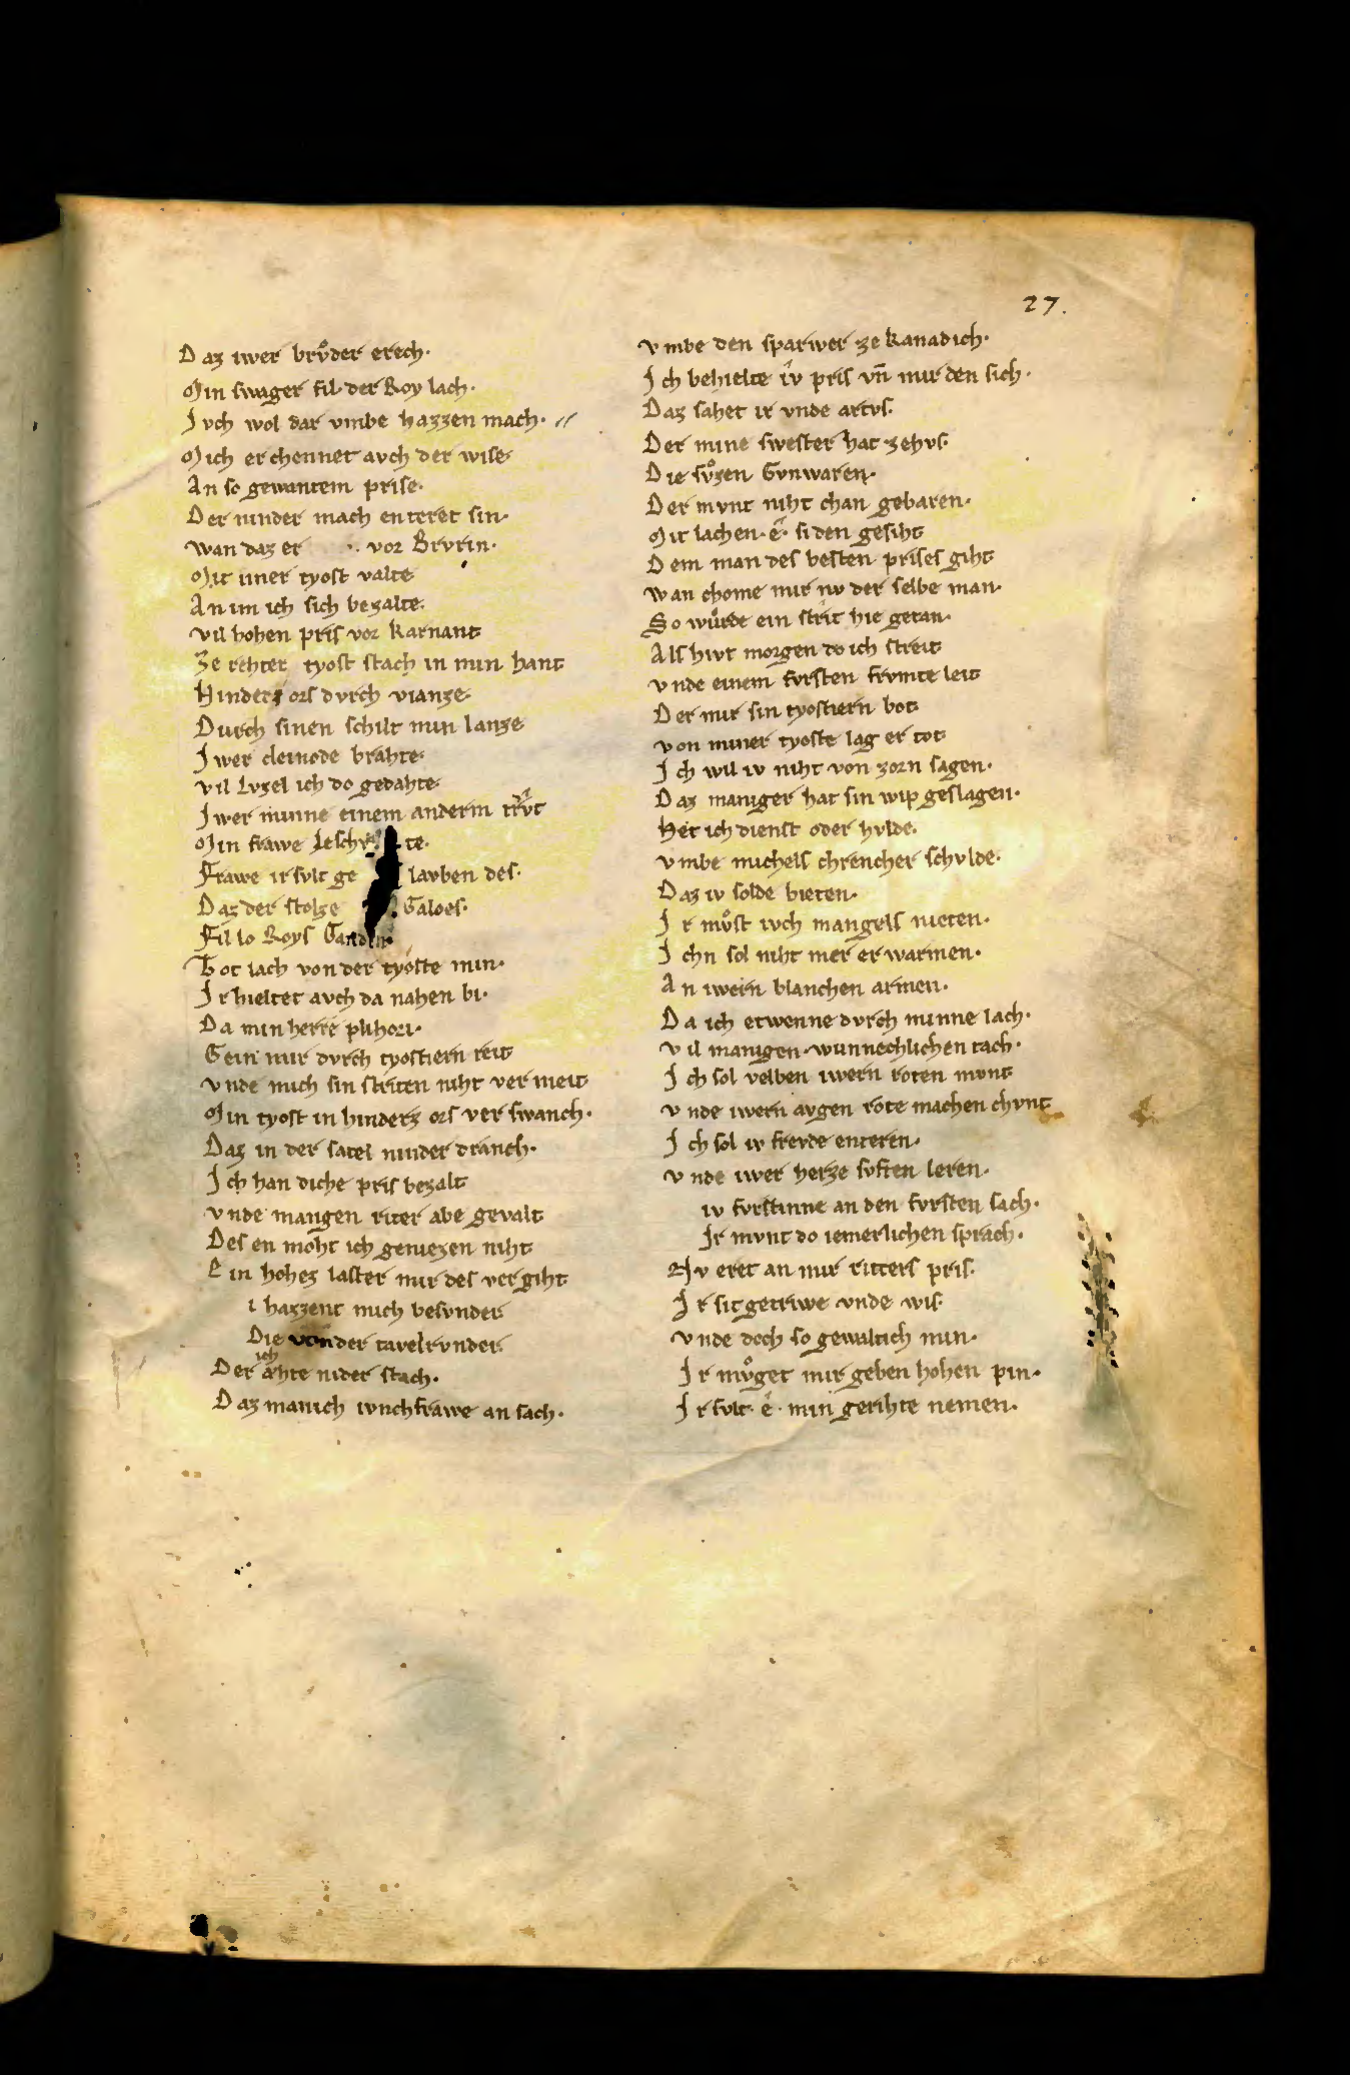 27.
Daz iwer brvͦder erech·
Min swager fil der Roy lach·
Ivch wol dar vmbe hazzen mach·
Mich erchennet avch der wise
An so gewantem prise·
Der ninder mach enteret sin·
wan daz er vor Brvrin·
Mit einer tyost valte
An im ich sich bezalte·
vil hohen pris vor karnant
Ze rehter tyost stach in min hant
Hinderz ors dvrch vianze·
Durch sinen schilt min lanze
Iwer cleinode brahte·
vil lvzel ich do gedahte·
Iwer minne einem anderm trvt
Min frawe Iesch te·
Frawe ir svlt ge lavben des·
Daz der stolze Galoes·
Fil lo Roys Gandin·
Tot lach von der tyoste min·
Ir hieltet avch da nahen bi·
Da min herre plihori·
Gein mir dvrch tyostiern reit
vnde mich sin striten niht vermeit
Min tyost in hinderz ors verswanch·
Daz in der satel ninder dranch·
Ich han diche pris bezalt
vnde mangen riter abe gevalt
Des en moht ich geniezen niht
Ein hohez laster mir des vergiht
i hazzent mich besvnder
Die von der tavelrvnder
Der ich ahte nider stach·
Daz manich ivnchfrawe an sach·
vmbe den sparwer ze kanadich·
Ich behielte iv pris vn̄ mir den sich·
Daz sahet ir vnde artvs·
Der mine swester hat zehvs·
Die svͦzen Gvnwaren·
Der mvnt niht chan gebaren·
Mit lachen· e· si den gesiht
Dem man des besten prises giht
wan chome mir nv der selbe man·
So wuͦrde ein strit hie getan·
Als hivt morgen do ich streit
vnde einem fvrsten frvmte leit
Der mir sin tyostiern bot
von miner tyoste lag er tot
Ich wil iv niht von zorn sagen·
Daz maniger hat sin wip geslagen·
Het ich dienst oder hvlde·
vmbe michels chrencher schvlde·
Daz iv solde bieten·
Ir mvͦst ivch mangels nieten·
Ichn sol niht mer er warmen·
An iwern blanchen armen·
Da ich etwenne dvrch minne lach·
vil manigen wunnechlichen tach·
Ich sol velben iwern roten mvnt
vnde iwern avgen rote machen chvnt
Ich sol iv frevde enteren·
vnde iwer herze svften leren·
iv fvrstinne an den fvrsten sach·
Ir mvnt do iemerlichen sprach·
Nv eret an mir ritters pris·
Ir sit getriwe vnde wis·
vnde doch so gewaltich min·
Ir mvͦget mir geben hohen pin·
Ir svlt· e· min gerihte nemen·